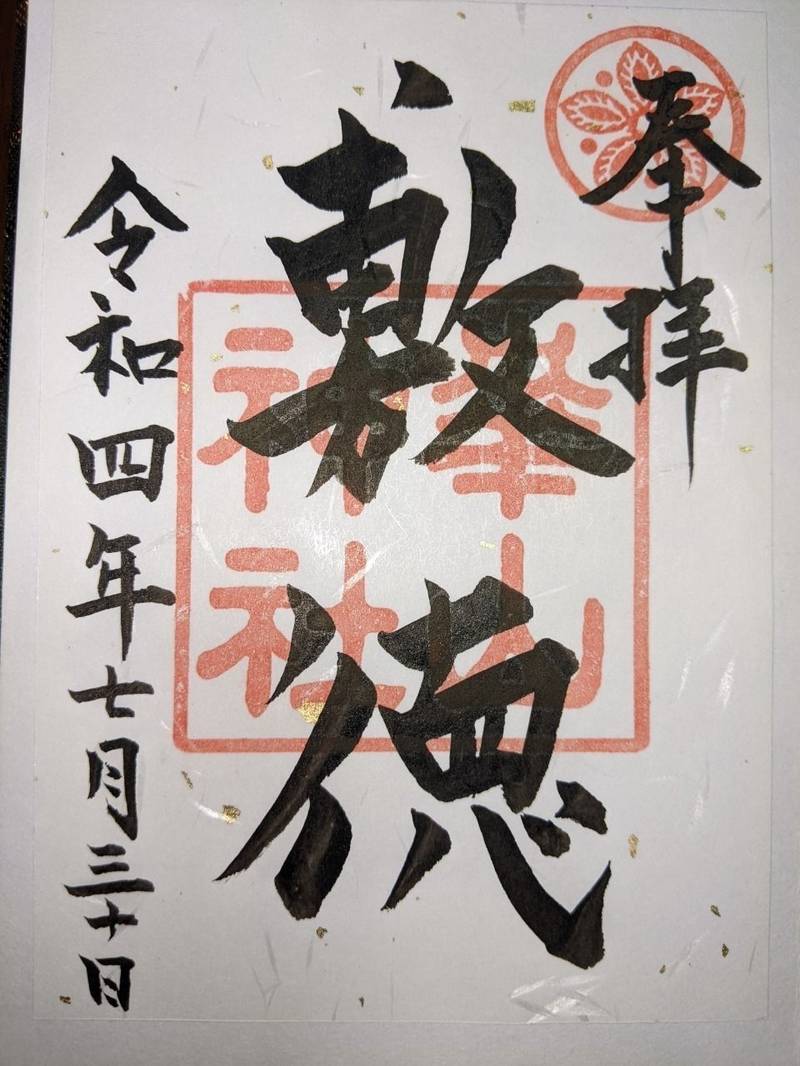 奉拝
敷徳
華山
神社
令和四年七月三十日